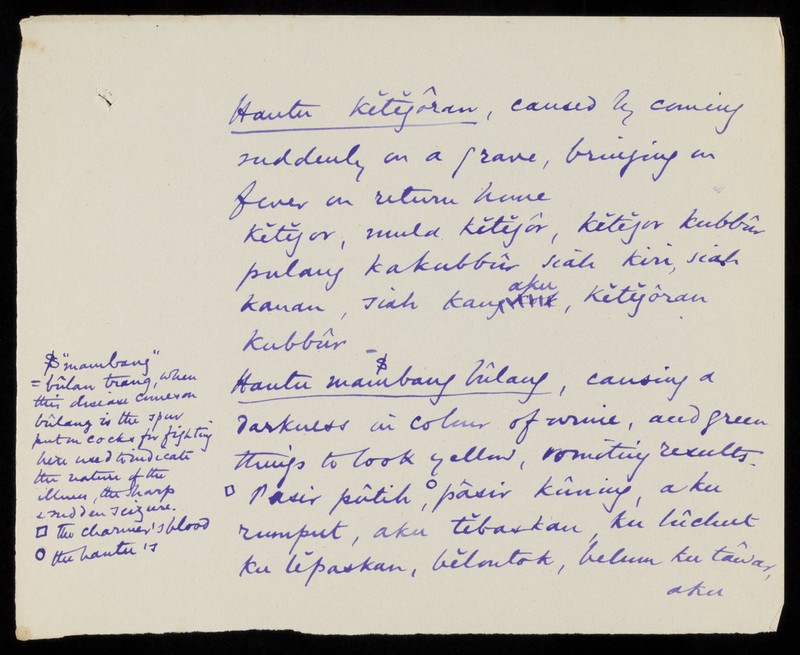 Hantu kĕtĕgôran, caused by coming
suddenly on a grave, bringing on
fever on return home
kĕtĕgor, mula kĕtĕgôr, kĕtĕgor kubbûr
pulang kakubbûr siah kiri, siah
kanan, siah kang aku, kĕtĕgôran
kubbûr —
Hantu mambang bûlang, causing a
darkness in colour of urine, and green
things to look yellow, vomiting results.
□ Pasir pûtih, ○ pâsir kûning, aku
rumput, aku tĕbaskan, ku lûchut
ku lĕpaskan, bĕlontok, belum ku tâwar,
aku
"mambang"
= bûlan trang, when
this disease comes on
bûlang is the spur
put on cocks for fighting
here used to indicate
the nature of the
illness, the sharp
& sudden seizure.
□ the charmer's blood
○ the hantu's